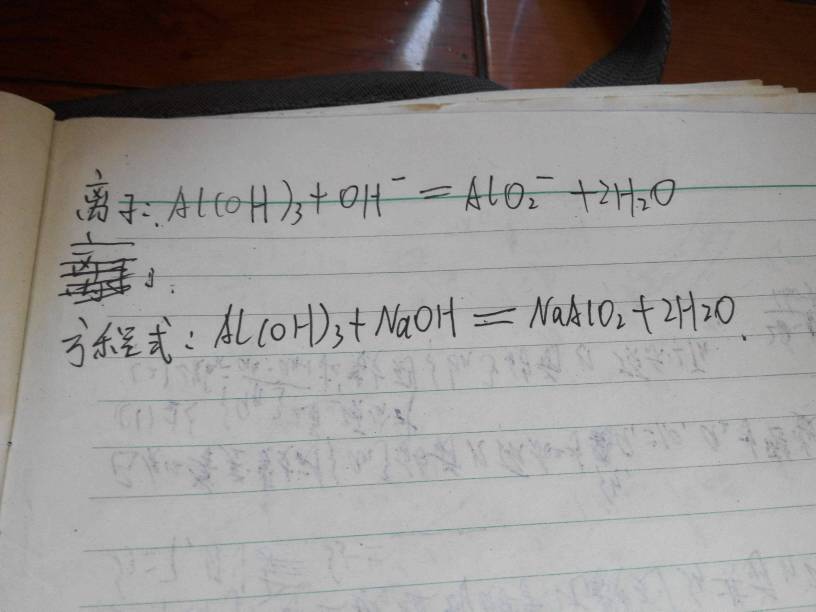 离子:Al(OH)₃+OH⁻=AlO₂⁻+2H₂O
方程式:Al(OH)₃+NaOH=NaAlO₂+2H₂O.